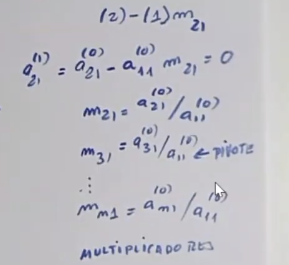 (2)-(1)m₂₁
a₂₁⁽¹⁾ = a₂₁⁽⁰⁾ - a₁₁⁽⁰⁾ m₂₁ = 0
m₂₁ = a₂₁⁽⁰⁾/a₁₁⁽⁰⁾
m₃₁ = a₃₁⁽⁰⁾/a₁₁⁽⁰⁾ ← PIVOTE
⋮
mₘ₁ = aₘ₁⁽⁰⁾/a₁₁⁽⁰⁾
MULTIPLICADORES